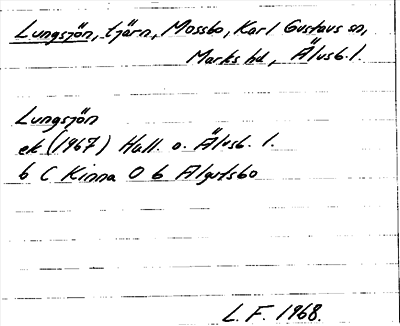 Lungsjön, tjärn, Mossbo, Karl Gustavs sn,
Marks hd, Älvsb. l.
Lungsjön
ek (1967) Hall. o. Älvsb. l.
6 C Kinna 0 b Algutsbo
L. F. 1968.